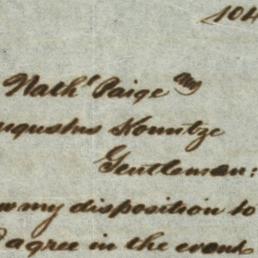 104
Nath' Paige
ugustus Kountze
Gentlemen:
w my disposition to
agree in the event